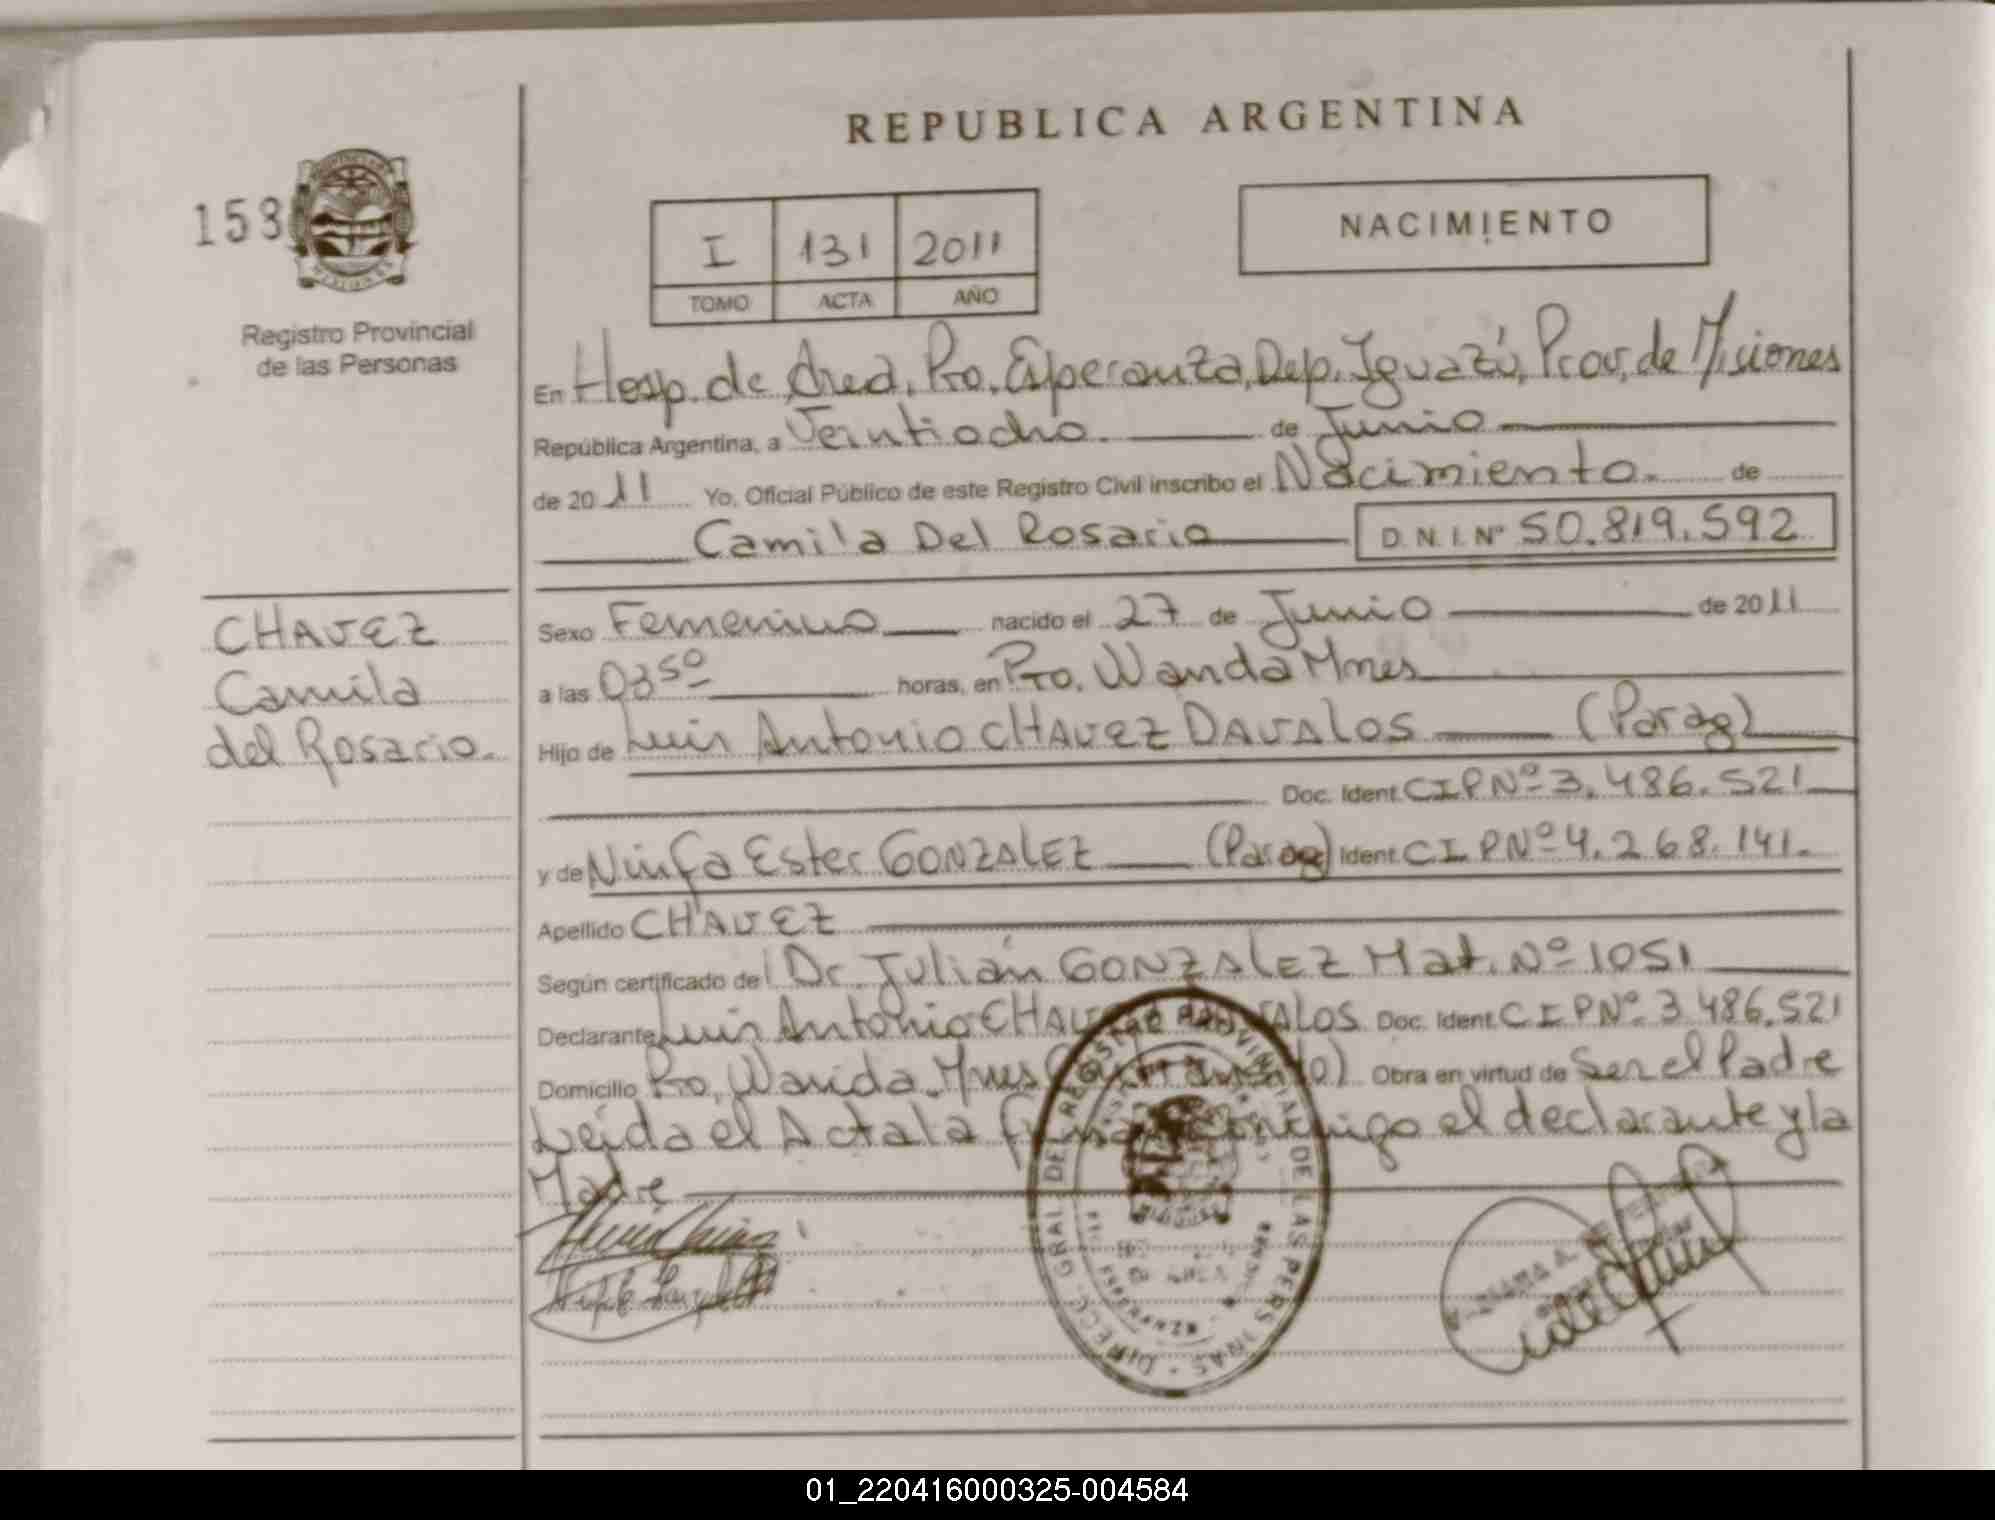 REPUBLICA ARGENTINA
153
Registro Provincial
de las Personas
I 131 2011
TOMO ACTA AÑO
NACIMIENTO
En Hosp. de Area, Pto. Esperanza, Dep. Iguazú, Prov. de Misiones
República Argentina, a Veintiocho. de Junio
de 2011 Yo, Oficial Público de este Registro Civil inscribo el Nacimiento. de
Camila Del Rosario D. N. I. Nº 50.819.592
CHAVEZ
Camila
del Rosario.
Sexo Femenino nacido el 27 de Junio de 2011
a las 03 50 horas, en Pto. Wanda Mnes
Hijo de Luis Antonio CHAVEZ DAVALOS (Parag)
Doc. Ident. CIPNº 3.486.521
y de Ninfa Ester GONZALEZ (Parag) Ident. CIPNº 4.268.141.
Apellido CHAVEZ
Según certificado del Dr. Julián GONZALEZ Mat. Nº 1051
Declarante Luis Antonio CHAVEZ DAVALOS Doc. Ident. CIPNº 3 486.521
Domicilio Pto. Wanda. Mnes Obra en virtud de Ser el Padre
Leida el Acta la firma conmigo el declarante y la
Madre
DIRECC. GRAL. DEL REGISTRO PROVINCIAL DE LAS PERSONAS
01_220416000325-004584